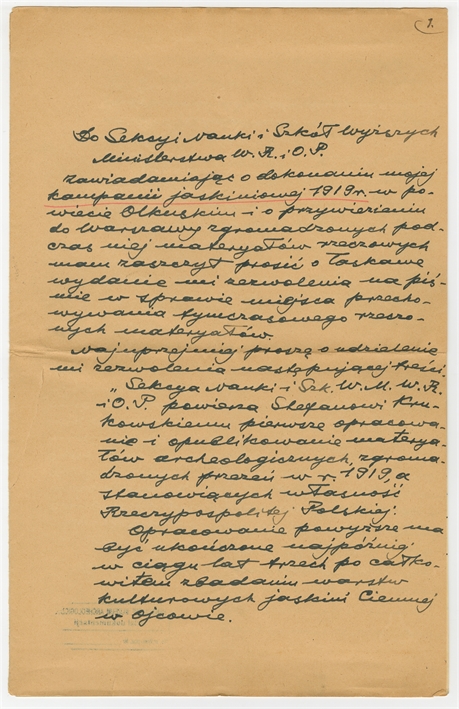 1.
Do Sekcyi Nauki i Szkół Wyższych
Ministerstwa W. R. i O. P.
Zawiadamiając o dokonaniu mojej
kampanii jaskiniowej 1919 r. w po-
wiecie Olkuskim i o przywiezieniu
do Warszawy zgromadzonych pod-
czas niej materyałów rzeczowych
mam zaszczyt prosić o łaskawe
wydanie mi zezwolenia na piś-
mie w sprawie miejsca przecho-
wywania tymczasowego rzeczo-
nych materyałów.
Najuprzejmiej proszę o udzielenie
mi zezwolenia następującej treści:
„Sekcya Nauki i Szk. W. M. W. R.
i O. P. powierza Stefanowi Kru-
kowskiemu pierwsze opracowa-
nie i opublikowanie materya-
łów archeologicznych, zgroma-
dzonych przezeń w r. 1919, a
stanowiących własność
Rzeczypospolitej Polskiej.
Opracowanie powyższe ma
być ukończone najpóźniej
w ciągu lat trzech po całko-
witem zbadaniu warstw
kulturowych jaskini Ciemnej
w Ojcowie.